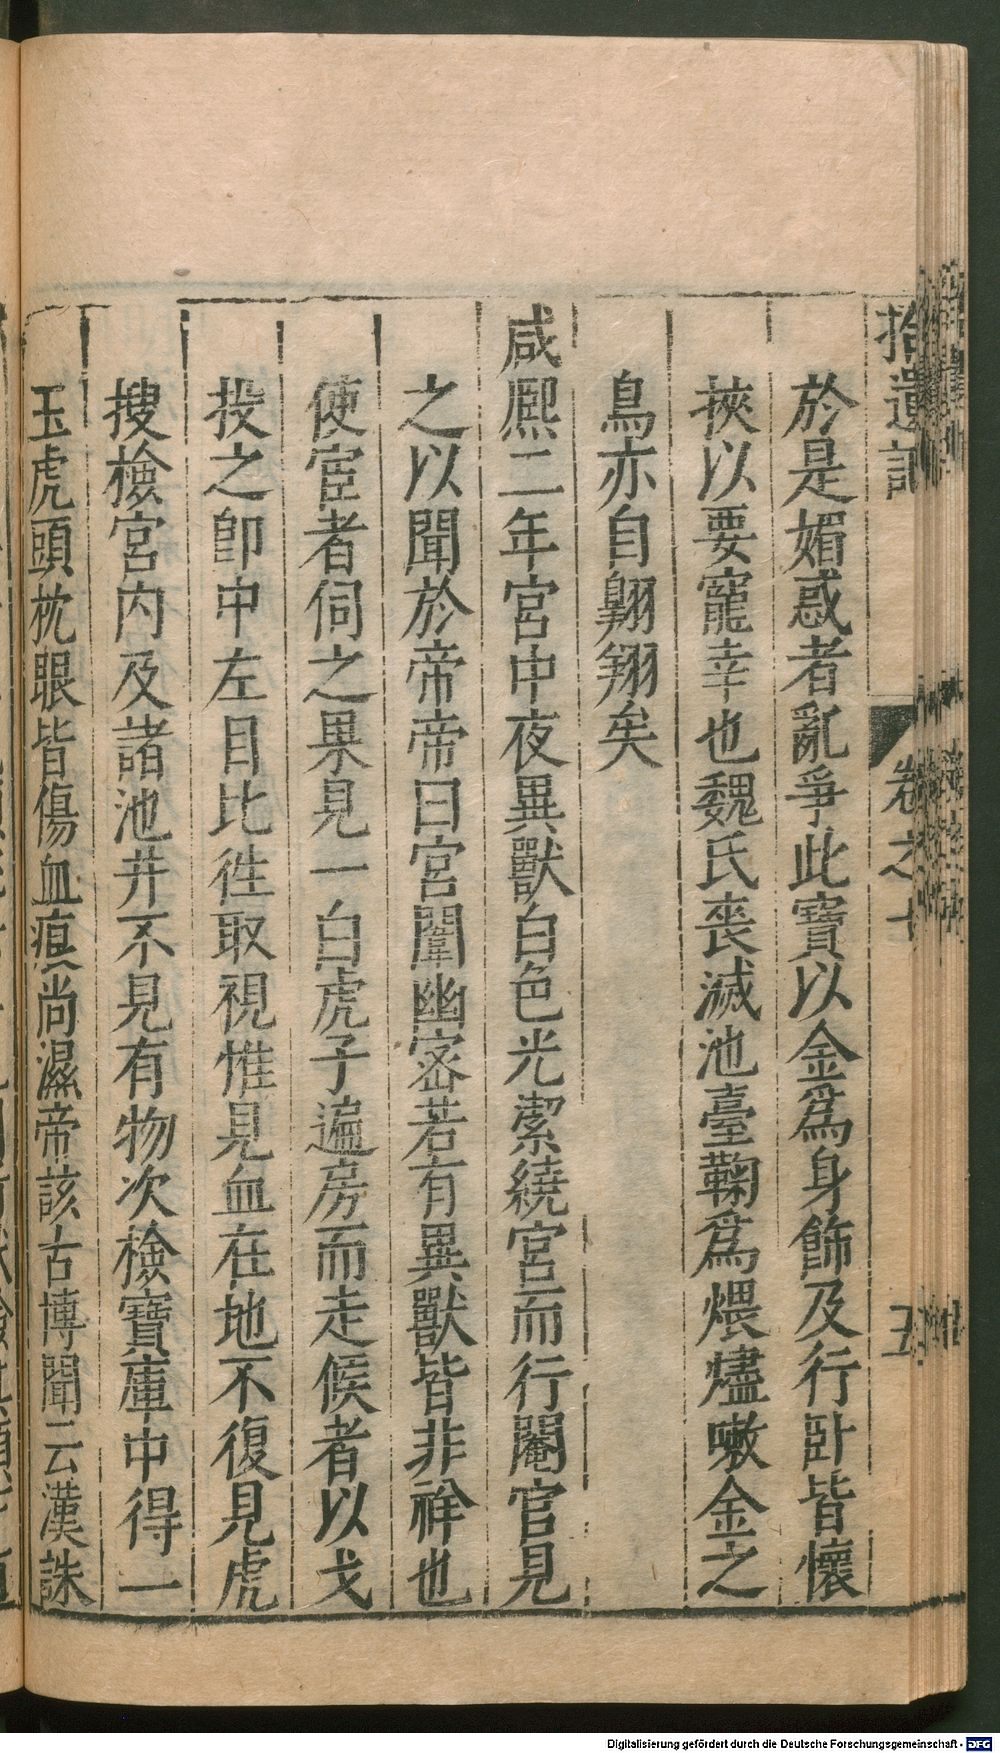 拾遺記 卷之七 五
於是媚惑者亂爭此寶以金爲身飾及行卧皆懷
挾以要寵幸也魏氏喪滅池臺鞠爲煨燼嗽金之
鳥亦自翺翔矣
咸熙二年宮中夜異獸白色光潔繞宮而行閹官見
之以聞於帝帝曰宮闈幽密若有異獸皆非祥也
使宦者伺之果見一白虎子遍房而走候者以戈
投之卽中左目比徃取視惟見血在地不復見虎
搜檢宮内及諸池井不見有物次檢寶庫中得一
玉虎頭枕眼皆傷血痕尚濕帝該古博聞云漢誅
Digitalisierung gefördert durch die Deutsche Forschungsgemeinschaft - DFG